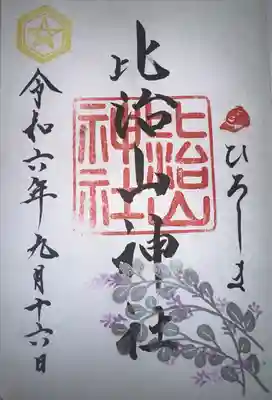 ひろしま
比治山神社
比治山
神社
令和六年九月十六日